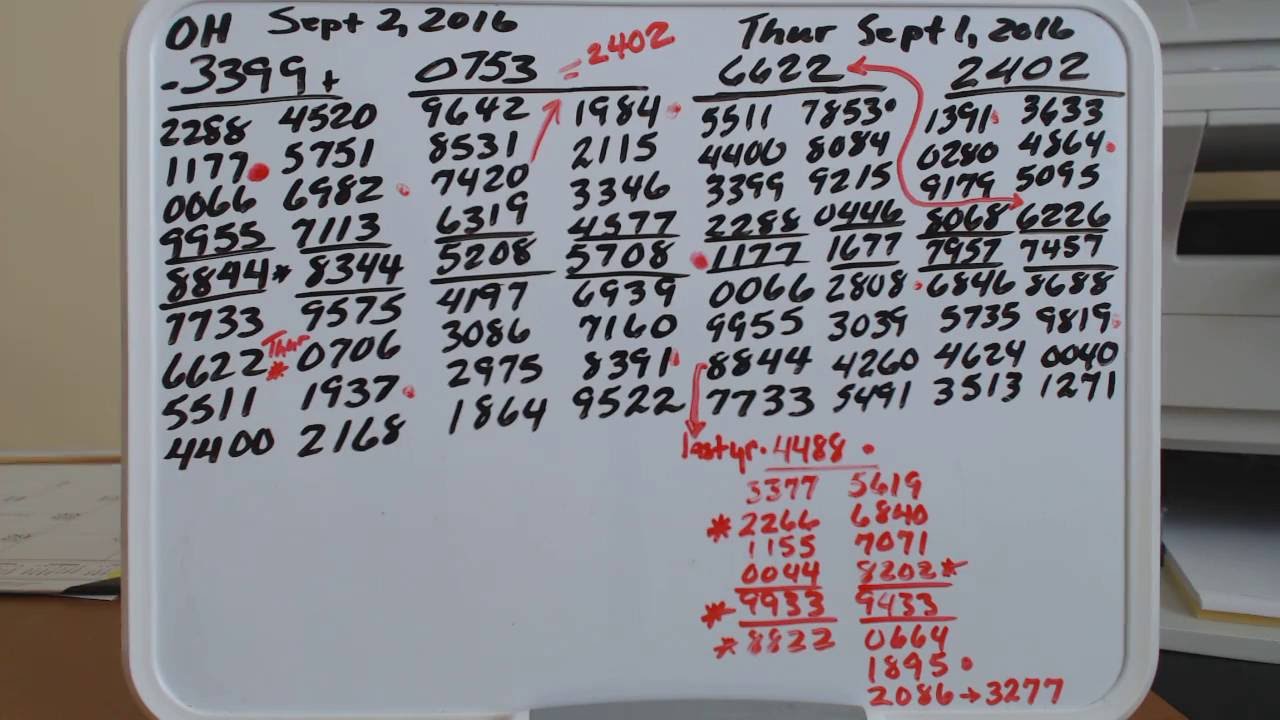 OH Sept 2, 2016 Thur Sept 1, 2016
-3399+ 0753 = 2402 6622 2402
2288 4520 9642 1984 5511 7853 1391 3633
1177 5751 8531 2115 4400 8084 0280 4864
0066 6982 7420 3346 3399 9215 9179 5095
9955 7113 6319 4577 2288 0446 8068 6226
8844* 8344 5208 5708 1177 1677 7957 7457
7733 9575 4197 6939 0066 2808 6846 8688
6622 Thur * 0706 3086 7160 9955 3039 5735 9819
5511 1937 2975 8391 8844 4260 4624 0040
4400 2168 1864 9522 7733 5491 3513 1271
last yr. 4488
3377 5619
*2266 6840
1155 7071
0044 8202*
*9933 9433
*8822 0664
1895
2086→3277